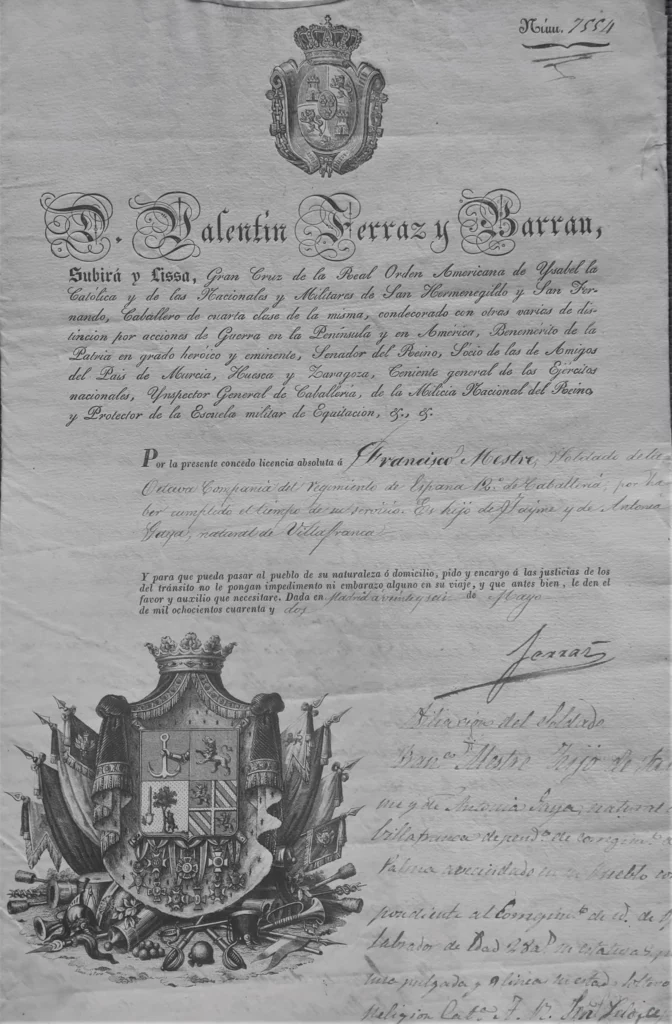 Núm. 7554
D. Valentín Ferraz y Barrau,
Subirá y Lissa, Gran Cruz de la Real Orden Americana de Ysabel la
Católica y de las Nacionales y Militares de San Hermenegildo y San Fer-
nando, Caballero de cuarta clase de la misma, condecorado con otras varias de dis-
tincion por acciones de Guerra en la Península y en América, Benemérito de la
Patria en grado heroico y eminente, Senador del Reino, Socio de las de Amigos
del Pais de Murcia, Huesca y Zaragoza, Teniente general de los Ejércitos
nacionales, Ynspector General de Caballería, de la Milicia Nacional del Reino
y Protector de la Escuela militar de Equitacion, &., &.
Por la presente concedo licencia absoluta á Francisco Mestre, Soldado de la
Octava Compañia del regimiento de España 12º de Caballeria, por ha
ber cumplido el tiempo de su servicio. Es hijo de Jayme y de Antonia
natural de Villafranca
Y para que pueda pasar al pueblo de su naturaleza ó domicilio, pido y encargo á las justicias de los
del tránsito no le pongan impedimento ni embarazo alguno en su viaje, y que antes bien, le den el
favor y auxilio que necesitare. Dada en Madrid a veinte y seis de Mayo
de mil ochocientos cuarenta y dos
Ferraz
Filiacion del Soldado
Mestre hijo de
me y de Antonia natural
Villafranca depend.te de corregim.to
Palma avecindado en su pueblo
pondiente al Corregim.to de id. de
labrador de
pulgada y linea su estad soltero
Religion